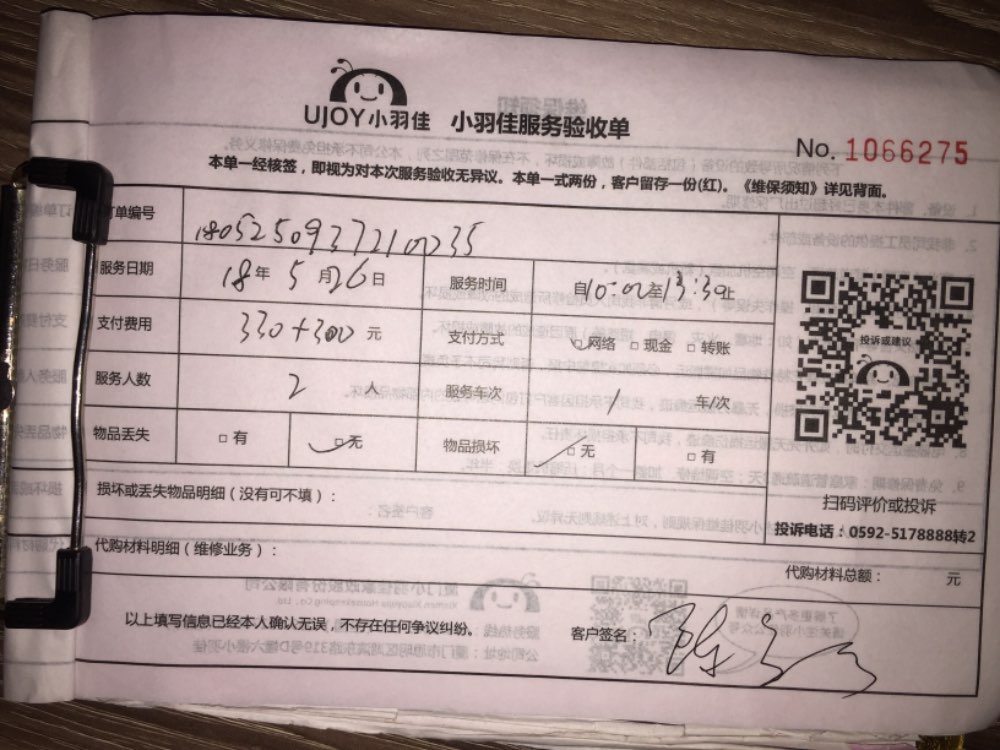 UJOY小羽佳 小羽佳服务验收单
No. 1066275
本单一经核签，即视为对本次服务验收无异议。本单一式两份，客户留存一份(红)。《维保须知》详见背面。
订单编号 18052509372100235
服务日期 18年 5月26日 服务时间 自10:00至13:30止
支付费用 330+300 元 支付方式 网络 □ 现金 □ 转账
服务人数 2 人 服务车次 1 车/次
物品丢失 □ 有 □ 无 物品损坏 □ 无 □ 有
投诉或建议
扫码评价或投诉
投诉电话：0592-5178888转2
损坏或丢失物品明细（没有可不填）：
代购材料明细（维修业务）：
代购材料总额： 元
以上填写信息已经本人确认无误，不存在任何争议纠纷。 客户签名：